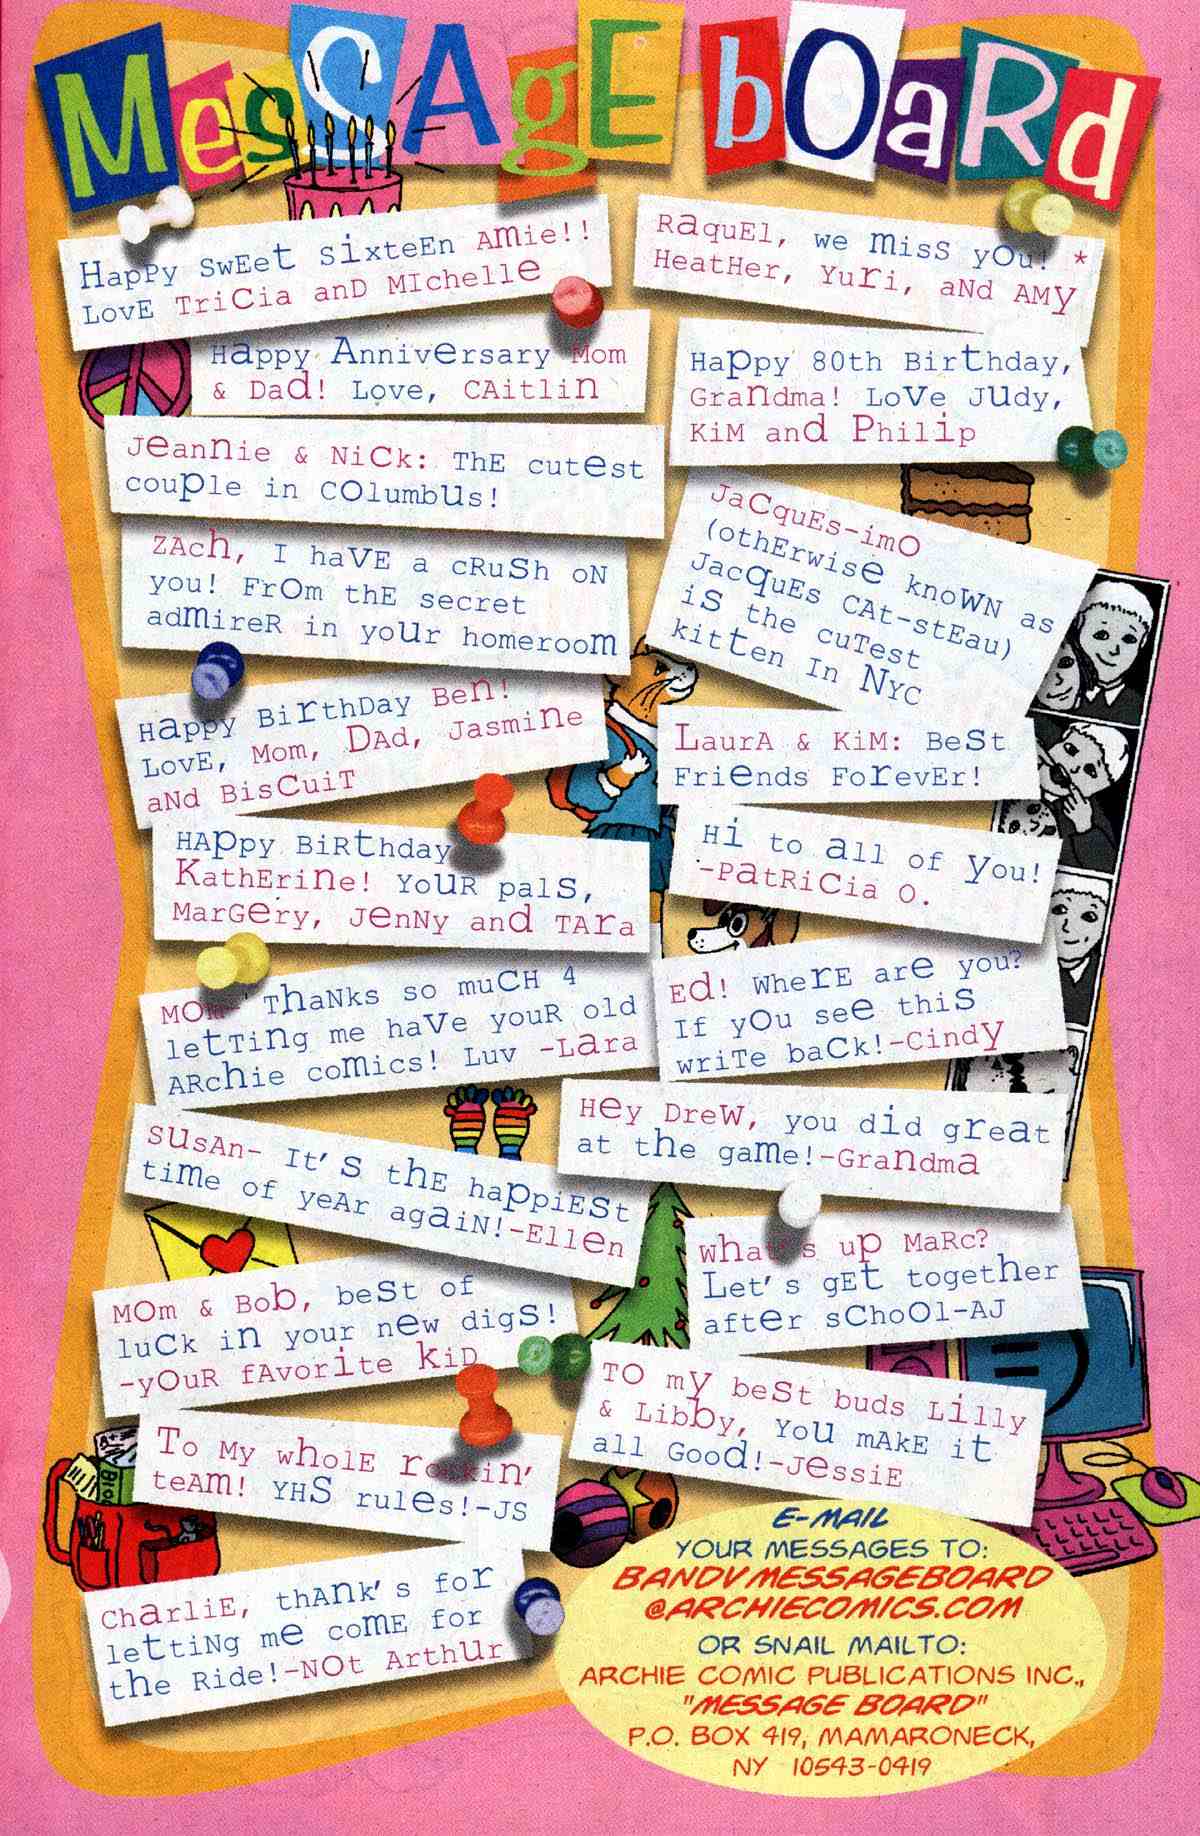 MesSAgE bOaRd
HapPy SwEet sixteEn Amie!!
LovE TriCia anD MIchellE
HaPpy AnnivErsary Mom
& Dad! Love, CAitlin
JEannie & NiCk: ThE cutest
couple in COlumbUs!
ZAch, I haVE a cRuSh oN
you! FrOm thE secret
admireR in yoUr homeroom
HaPpy BirthDay Ben!
LovE, Mom, DAd, Jasmine
aNd BisCuiT
HAppy BiRthday
KathEriNe! YoUR palS,
MarGery, JEnNy and TAra
MOm- ThaNks so muCH 4
letTiNg me haVe youR old
ARchie comics! Luv -Lara
SUsAn- It's thE happiESt
time of yeAr agaiN!-Ellen
MOm & Bob, beSt of
luCk in your new digS!
-yOuR fAvorite kiD
To My wholE rockin'
teAm! YHS rules!-JS
CharliE, thAnk's for
lettiNg me comE for
the Ride!-NOt ArthUr
RaquEl, we misS yOu! *
HeatHer, YuRi, aNd AMy
HaPpy 80th Birthday,
GraNdma! LoVe JUdy,
KiM and Philip
JaCquEs-imO
(othErwise knoWN as
JacquEs CAt-stEau)
iS the cuTest
kitten In NyC
LaurA & KiM: BeSt
Friends ForevEr!
Hi to all of you!
-PatRiCia O.
Ed! WheRE are you?
If yOu see thiS
wriTe baCk!-Cindy
Hey DreW, you did great
at the game!-Grandma
what's up MaRc?
Let's gEt together
after sChoOl-AJ
TO my beSt buds Lilly
& Libby, YoU mAkE it
all Good!-JessiE
E-MAIL
YOUR MESSAGES TO:
BANDVMESSAGEBOARD
@ARCHIECOMICS.COM
OR SNAIL MAIL TO:
ARCHIE COMIC PUBLICATIONS INC.,
"MESSAGE BOARD"
P.O. BOX 419, MAMARONECK,
NY 10543-0419